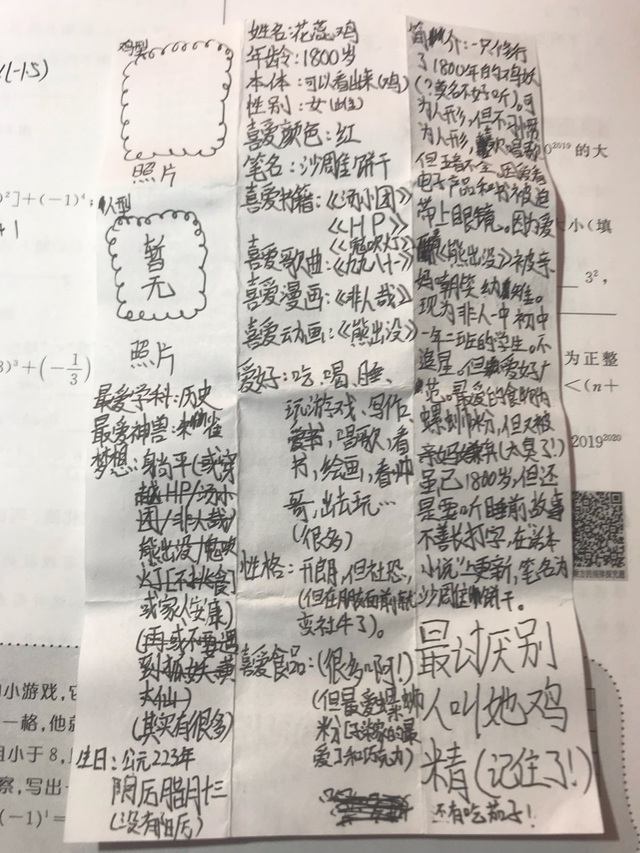 鸡型
照片
人型
暂
无
照片
最爱学科:历史
最爱神兽:朱雀
梦想:身尚平(或穿
越HP/汤小
团/非人哉/
熊出没/鬼吹
灯[不挑食]
或家人安康)
(再或不要遇
到狐妖黄
大仙)
(其实有很多)
生日:公元223年
阴历腊月十三
(没有阳历)
姓名:花蕊鸡
年龄:1800岁
本体:可以看出来(鸡)
性别:女(雌性)
喜爱颜色:红
笔名:沙雕饼干
喜爱书籍:《汤小团》
《HP》
《鬼吹灯》
喜爱歌曲:《九九八十一》
喜爱漫画:《非人哉》
喜爱动画:《熊出没》
爱好:吃、喝、睡、
玩游戏、写作、
唱歌,看
书,绘画,看帅
哥,出去玩…
(很多)
性格:开朗,但社恐,
(但在朋友面前就
变社牛了)。
喜爱食品:(很多啊!)
(但最爱螺蛳
粉
爱了和巧克力)
简介:一只修行
了1800年的鸡妖
(?莫名不好听)。可
为人形,但不习惯
为人形,喜欢唱歌
但五音不全,因爱看
电子产品和书被迫
带上眼镜。因为爱
看《熊出没》被亲
妈嘲笑幼稚。
现为非人一中初中
一年二班的学生。不
追星。但爱好广
范。最爱的食品为
螺蛳粉,但又被
亲妈嫌弃(太臭了!)
虽已1800岁,但还
是要听睡前故事
不善长打字,在话本
小说上更新,笔名为
沙雕饼干。
最讨厌别
人叫她鸡
精(记住了!)
还有吃茄子!
(-1.5)
²]+(-1)⁴;
+1
3)³+(-1/3)
2019 的大
小(填
3²,
为正整
<(n+
2019²⁰²⁰
的小游戏,它
一格,他就
目小于8,
察,写出
(-1)¹=